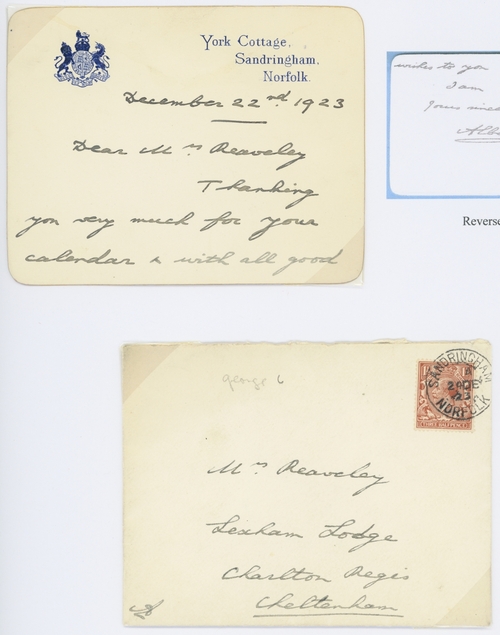 York Cottage,
Sandringham,
Norfolk.
December 22nd. 1923
Dear Mrs Reaveley
Thanking
you very much for your
calendar & with all good
wishes to you
I am
Yours since
Alb
Reverse
george 6
SANDRINGHAM
NORFOLK
THREE HALFPENCE
Mrs Reaveley
Lexham Lodge
Charlton Regis
Cheltenham